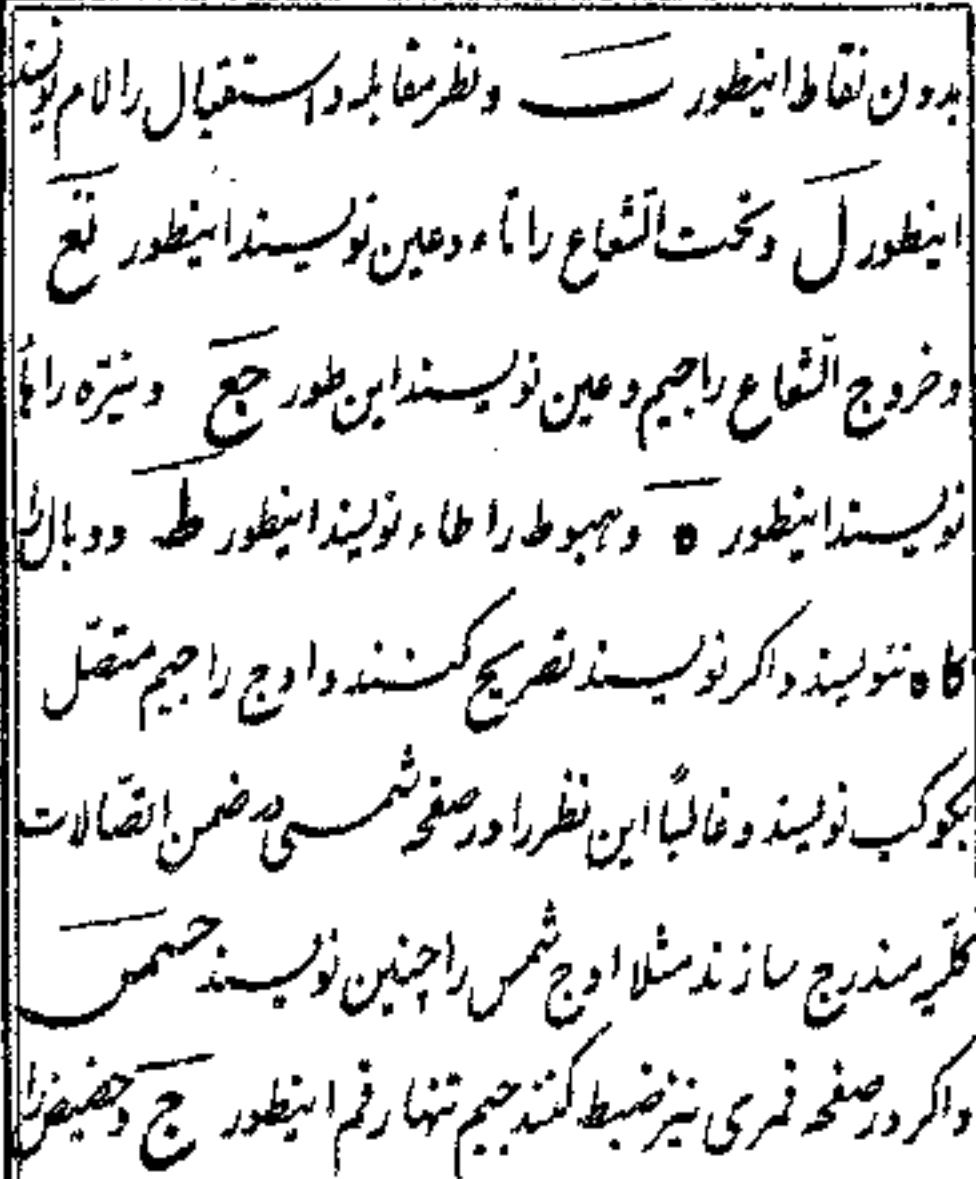 بدون نقاط اینطور ٮ ونظر مقابله و استقبال را لام نویسند
اینطور ل و تحت الشّعاع را تاء و عین نویسند اینطور تع
و خروج الشّعاع را جیم و عین نویسند این طور جع و نیّره را هاء
نویسند اینطور ه و هبوط را طاء نویسند اینطور ط و وبال را
کاه ننویسند و اکر نویسند تصریح کنند و اوج را جیم متصّل
بکوکب نویسند و غالبًا این نظر را در صفحه شمسی در ضمن اتصّالات
کلّیه مندرج سازند مثلا اوج شمس را چنین نویسند جسمس
و اکر در صفحه قمری نیز ضبط کنند جیم تنها رقم اینطور ج و حضیض را